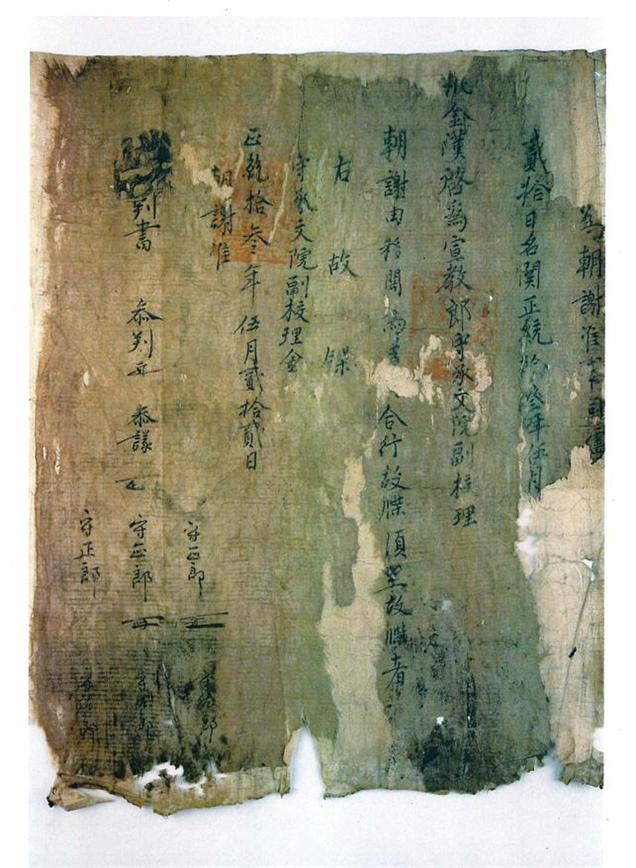 朝謝准事司憲
貳拾日名關正統拾叅年伍月
批金漢啓爲宣教郎守承文院副校理
朝謝由移關爲等 合行故牒須至故牒者
右故牒
守承文院副校理金
正統拾叅年伍月貳拾貳日
朝謝准
判書 叅判 叅議 守正郎 守正郎 守正郎